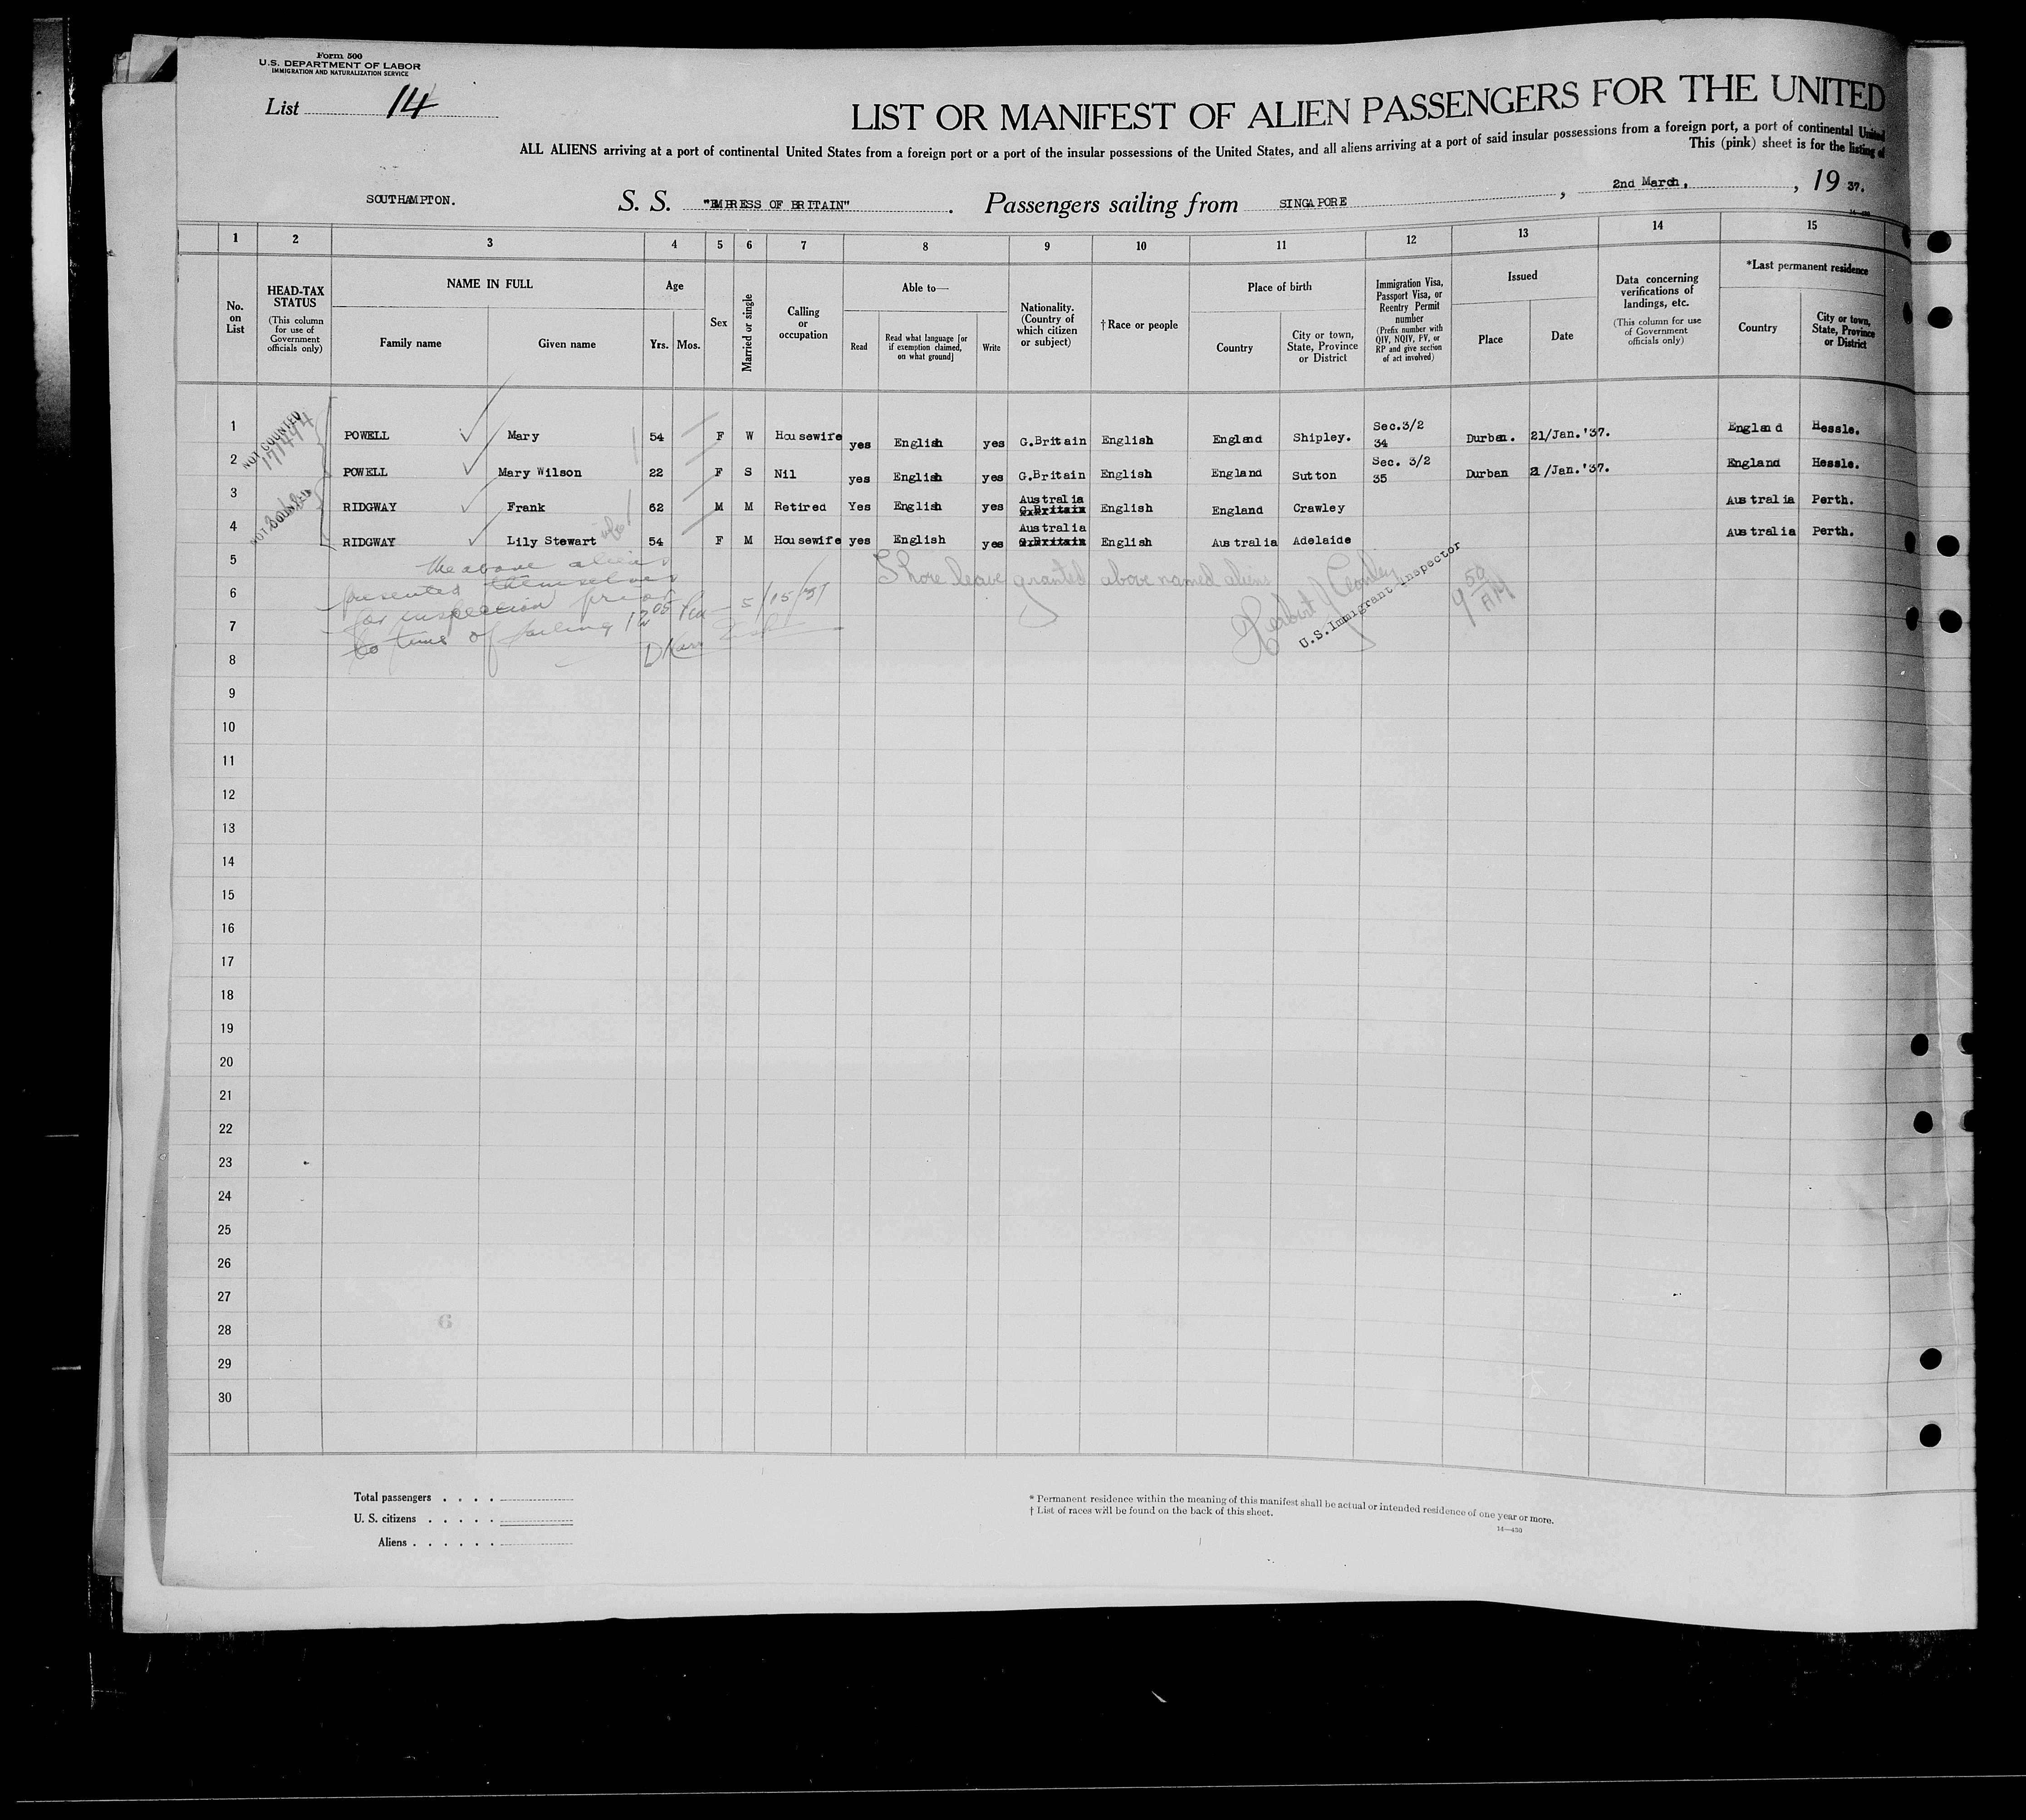 Form 500
U.S. DEPARTMENT OF LABOR
IMMIGRATION AND NATURALIZATION SERVICE
List 14
LIST OR MANIFEST OF ALIEN PASSENGERS FOR THE UNITED
ALL ALIENS arriving at a port of continental United States from a foreign port or a port of the insular possessions of the United States, and all aliens arriving at a port of said insular possessions from a foreign port, a port of continental United
This (pink) sheet is for the listing of
SOUTHAMPTON. S. S. "EMPRESS OF BRITAIN" . Passengers sailing from SINGAPORE , 2nd March, , 19 37.
14-430
1 2 3 4 5 6 7 8 9 10 11 12 13 14 15
No. on List
HEAD-TAX STATUS
(This column for use of Government officials only)
NAME IN FULL
Family name Given name
Age
Yrs. Mos.
Sex
Married or single
Calling or occupation
Able to—
Read Read what language [or if exemption claimed, on what ground] Write
Nationality. (Country of which citizen or subject)
†Race or people
Place of birth
Country City or town, State, Province or District
Immigration Visa, Passport Visa, or Reentry Permit number
(Prefix number with QIV, NQIV, PV, or RP and give section of act involved)
Issued
Place Date
Data concerning verifications of landings, etc.
(This column for use of Government officials only)
*Last permanent residence
Country City or town, State, Province or District
NOT COUNTED
1 POWELL Mary 54 F W Housewife yes English yes G.Britain English England Shipley. Sec.3/2 34 Durban. 21/Jan.'37. England Hessle.
2 POWELL Mary Wilson 22 F S Nil yes English yes G.Britain English England Sutton Sec. 3/2 35 Durban 21/Jan.'37. England Hessle.
NOT COUNTED
3 RIDGWAY Frank 62 M M Retired Yes English yes Australia G.Britain English England Crawley Australia Perth.
4 RIDGWAY Lily Stewart wife 54 F M Housewife yes English yes Australia G.Britain English Australia Adelaide Australia Perth.
5
6
7
8
The above aliens
presented themselves
for inspection prior
to time of sailing 12 05 5/15/37
Shore leave granted above named aliens
Herbert J
U.S.Immigrant Inspector
9 50 AM
9
10
11
12
13
14
15
16
17
18
19
20
21
22
23
24
25
26
27
28
29
30
6
Total passengers . . . .
U. S. citizens . . . . .
Aliens . . . . . .
* Permanent residence within the meaning of this manifest shall be actual or intended residence of one year or more.
† List of races will be found on the back of this sheet.
14—430